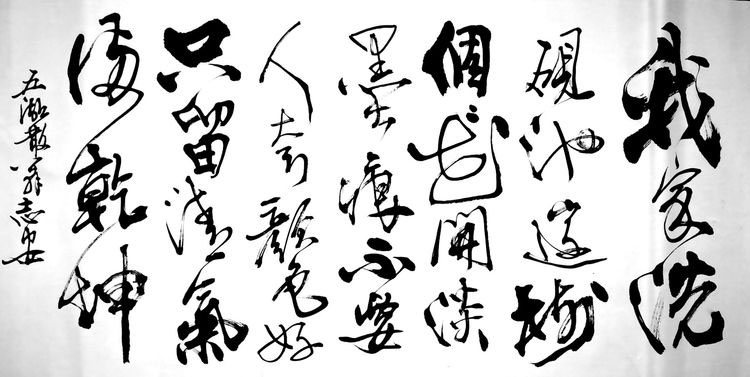 我家洗
硯池邊樹
個々花開淡
墨痕不要
人夸顏色好
只留清氣
滿乾坤
五湖散翁志安